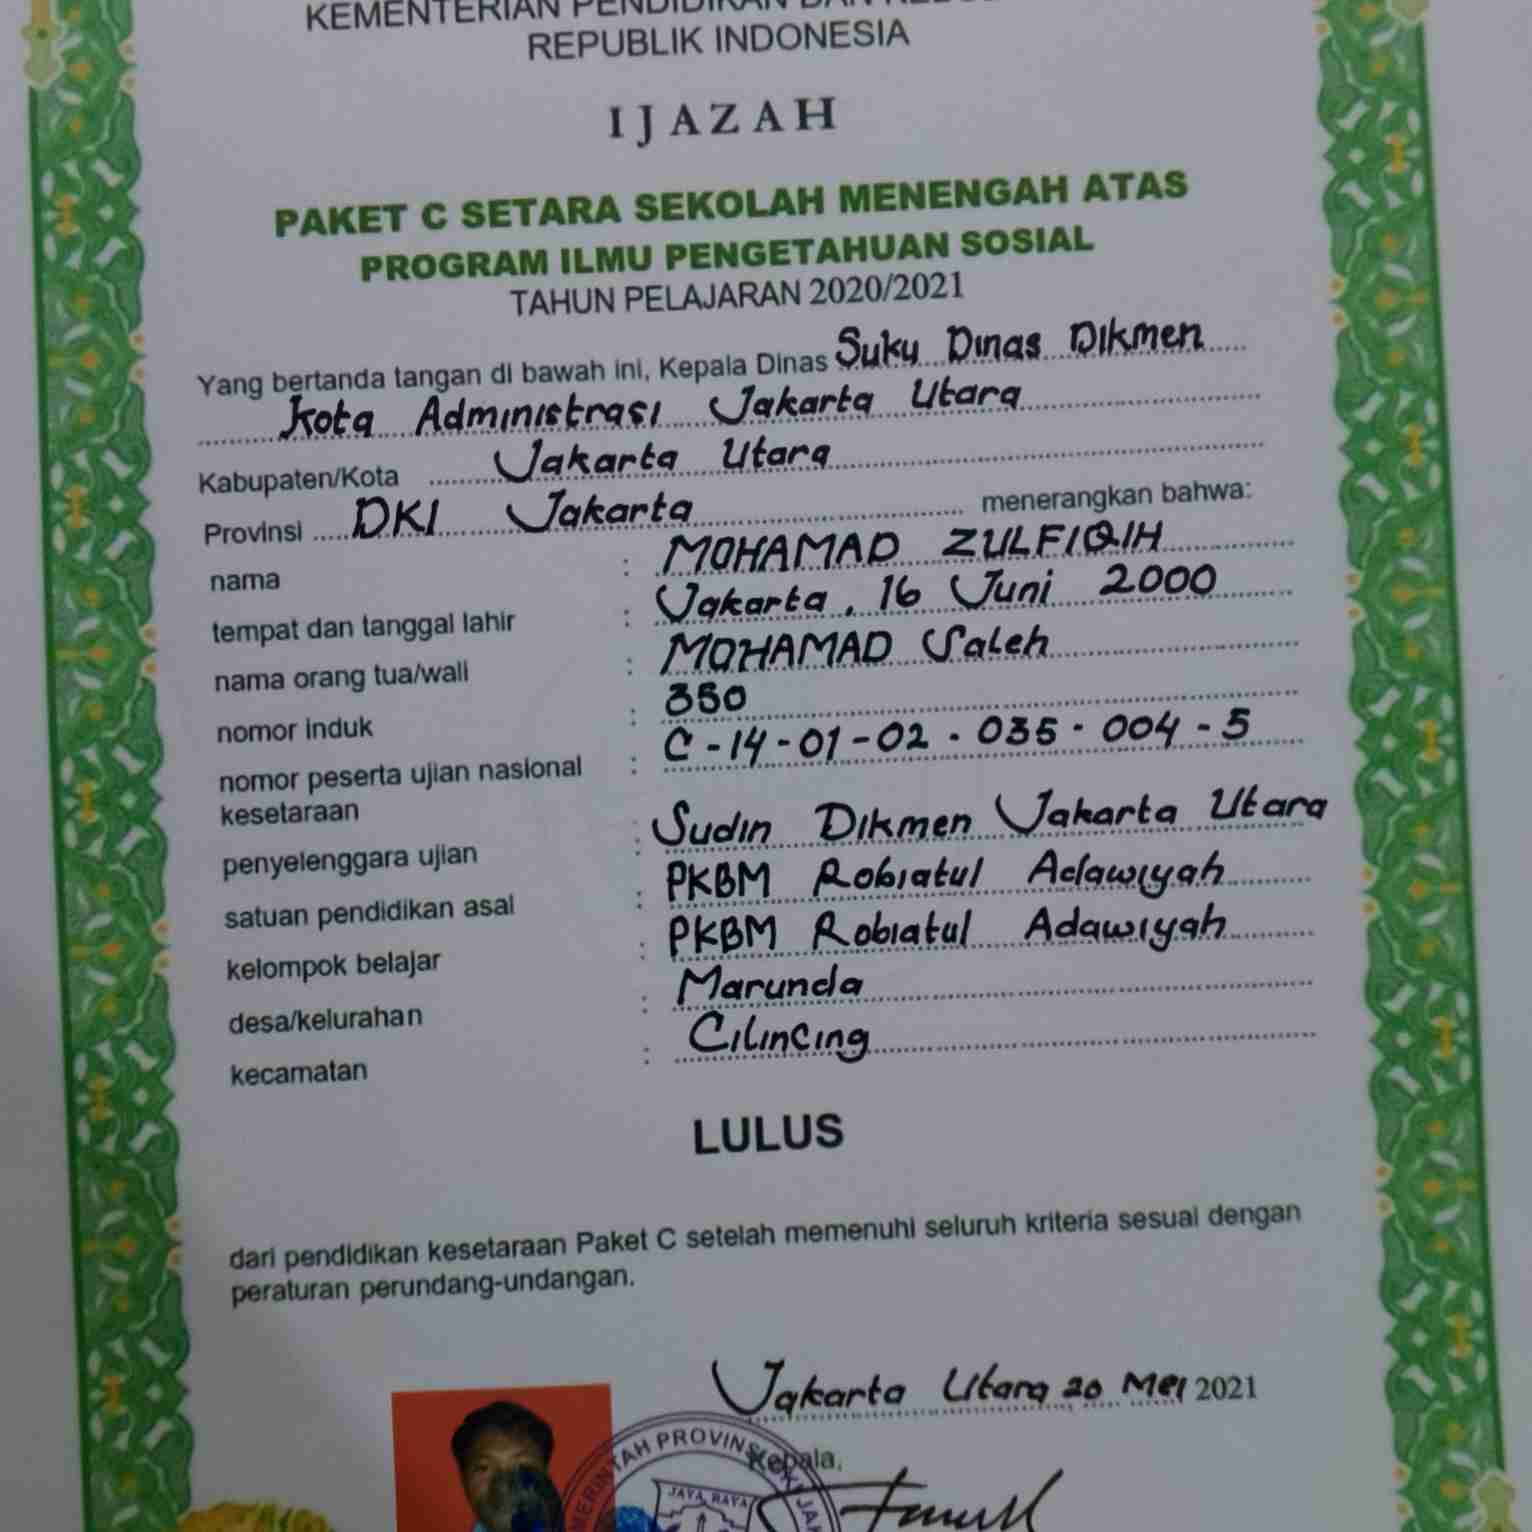 KEMENTERIAN PENDIDIKAN DAN
REPUBLIK INDONESIA
IJAZAH
PAKET C SETARA SEKOLAH MENENGAH ATAS
PROGRAM ILMU PENGETAHUAN SOSIAL
TAHUN PELAJARAN 2020/2021
Yang bertanda tangan di bawah ini, Kepala Dinas Suku Dinas Dikmen
Kota Administrasi Jakarta Utara
Kabupaten/Kota Jakarta Utara
Provinsi DKI Jakarta menerangkan bahwa:
nama : MOHAMAD ZULFIQIH
tempat dan tanggal lahir : Jakarta, 16 Juni 2000
nama orang tua/wali : MOHAMAD Saleh
nomor induk : 350
nomor peserta ujian nasional : C-14-01-02-035-004-5
kesetaraan
penyelenggara ujian : Sudin Dikmen Jakarta Utara
satuan pendidikan asal : PKBM Robiatul Adawiyah
kelompok belajar : PKBM Robiatul Adawiyah
desa/kelurahan : Marunda
kecamatan : Cilincing
LULUS
dari pendidikan kesetaraan Paket C setelah memenuhi seluruh kriteria sesuai dengan
peraturan perundang-undangan.
Jakarta Utara 20 Mei 2021
Kepala,
JAYA RAYA